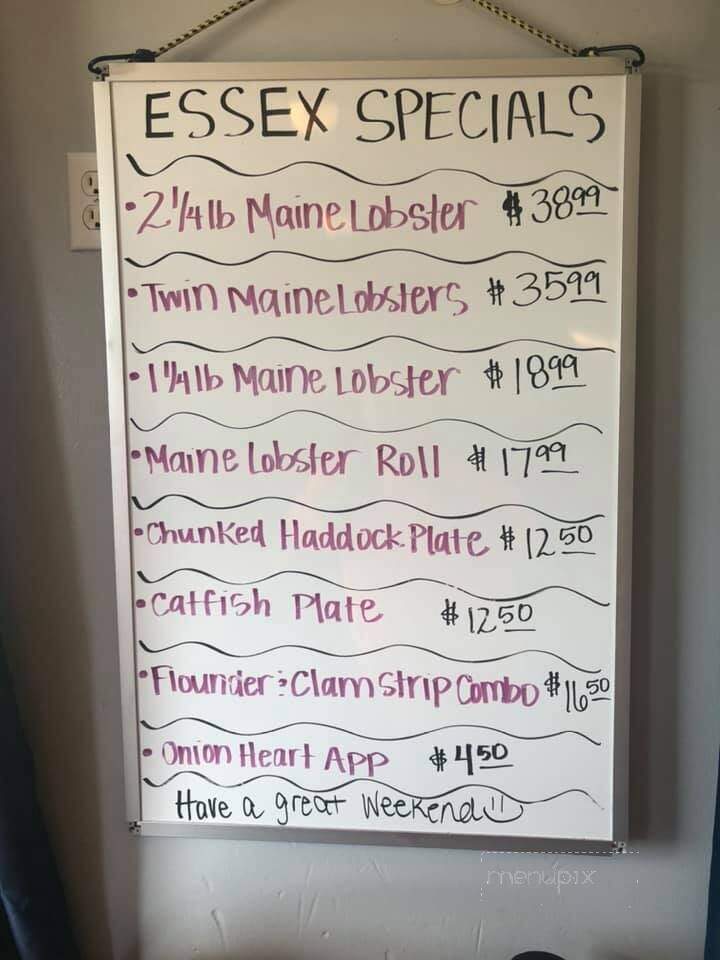 ESSEX SPECIALS
• 2 1/4 lb Maine Lobster $38.99
• Twin Maine Lobsters $35.99
• 1 1/4 lb Maine Lobster $18.99
• Maine Lobster Roll $17.99
• Chunked Haddock Plate $12.50
• Catfish Plate $12.50
• Flounder & Clam Strip Combo $16.50
• Onion Heart App $4.50
Have a great weekend
menupix